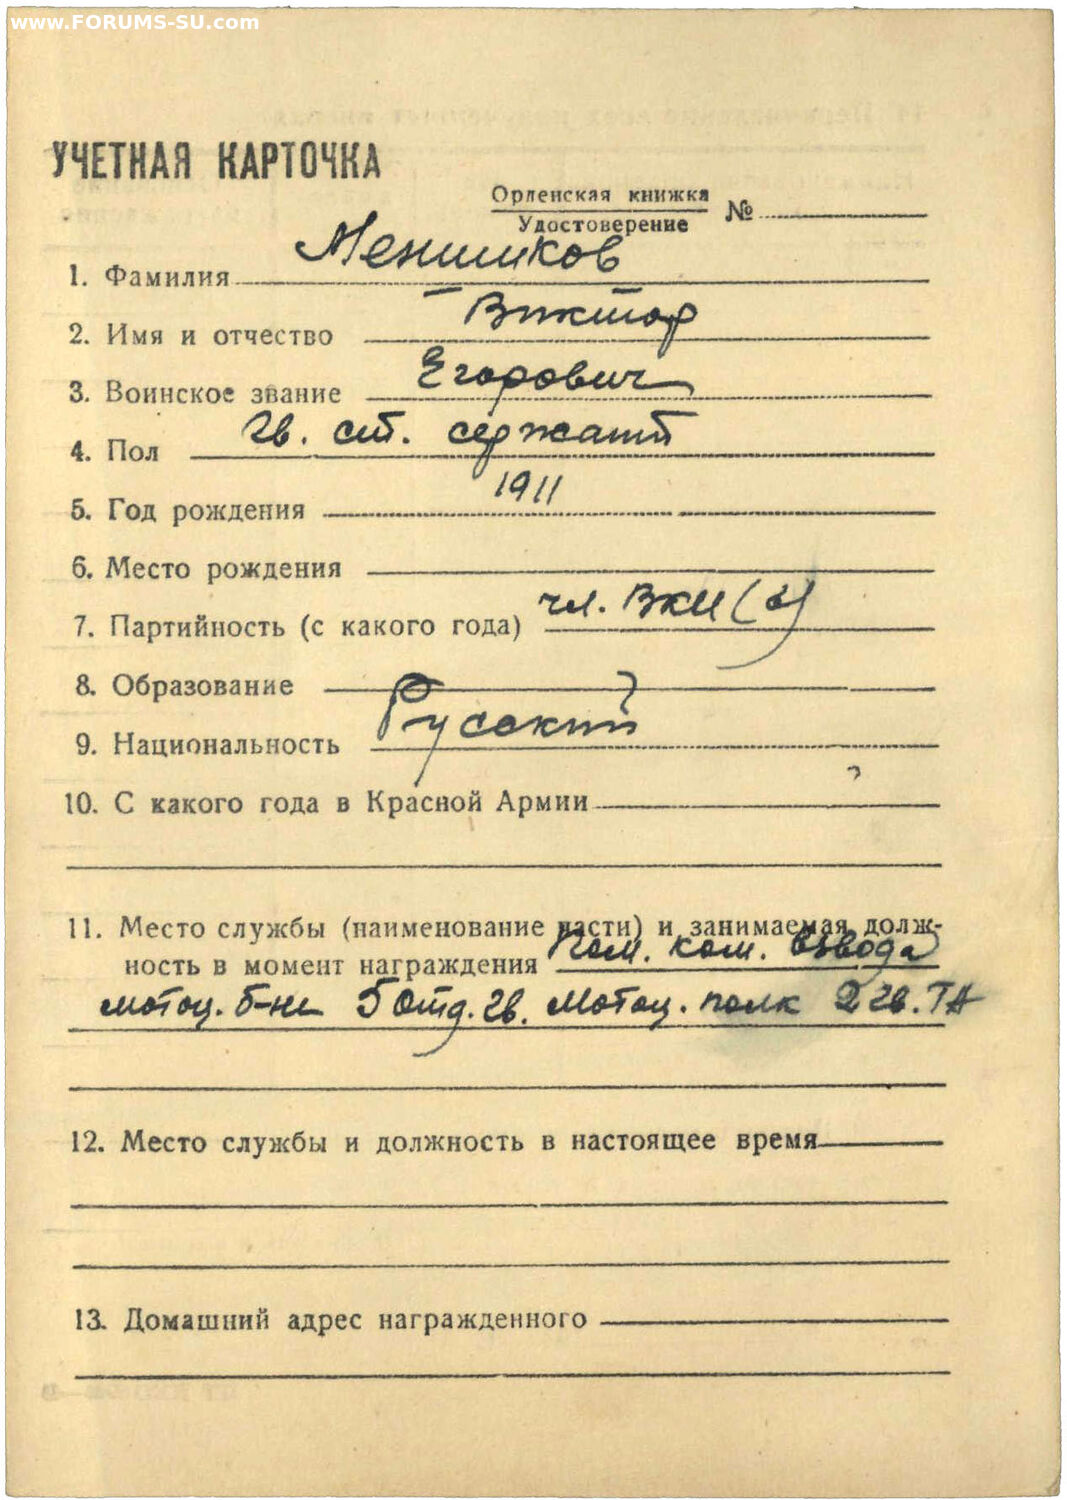 www.FORUMS-SU.com
УЧЕТНАЯ КАРТОЧКА
Орденская книжка
Удостоверение №
Меншиков
1. Фамилия
Виктор
2. Имя и отчество
Егорович
3. Воинское звание
Гв. ст. сержант
4. Пол
1911
5. Год рождения
6. Место рождения
чл. ВКП(б)
7. Партийность (с какого года)
8. Образование
Русский
9. Национальность
10. С какого года в Красной Армии
11. Место службы (наименование части) и занимаемая долж-
ность в момент награждения Пом. ком. взвода
мотоц. б-на 5 Отд. гв. мотоц. полк 2 гв. ТА
12. Место службы и должность в настоящее время
13. Домашний адрес награжденного